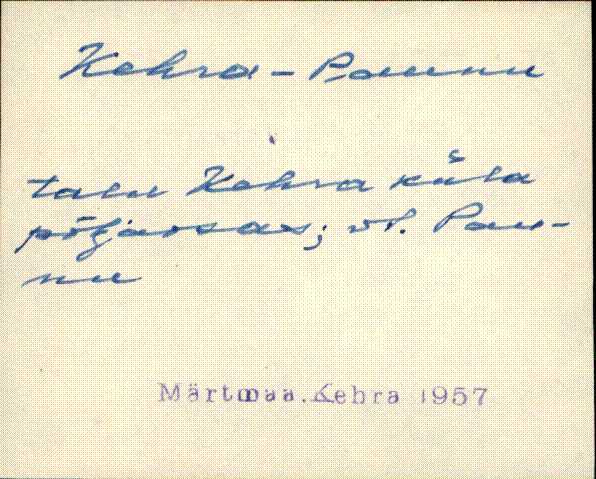 Kehra-Paunu
talu Kehra küla
põhjaosas; vt. Pau-
nu
Märtmaa. Kehra 1957